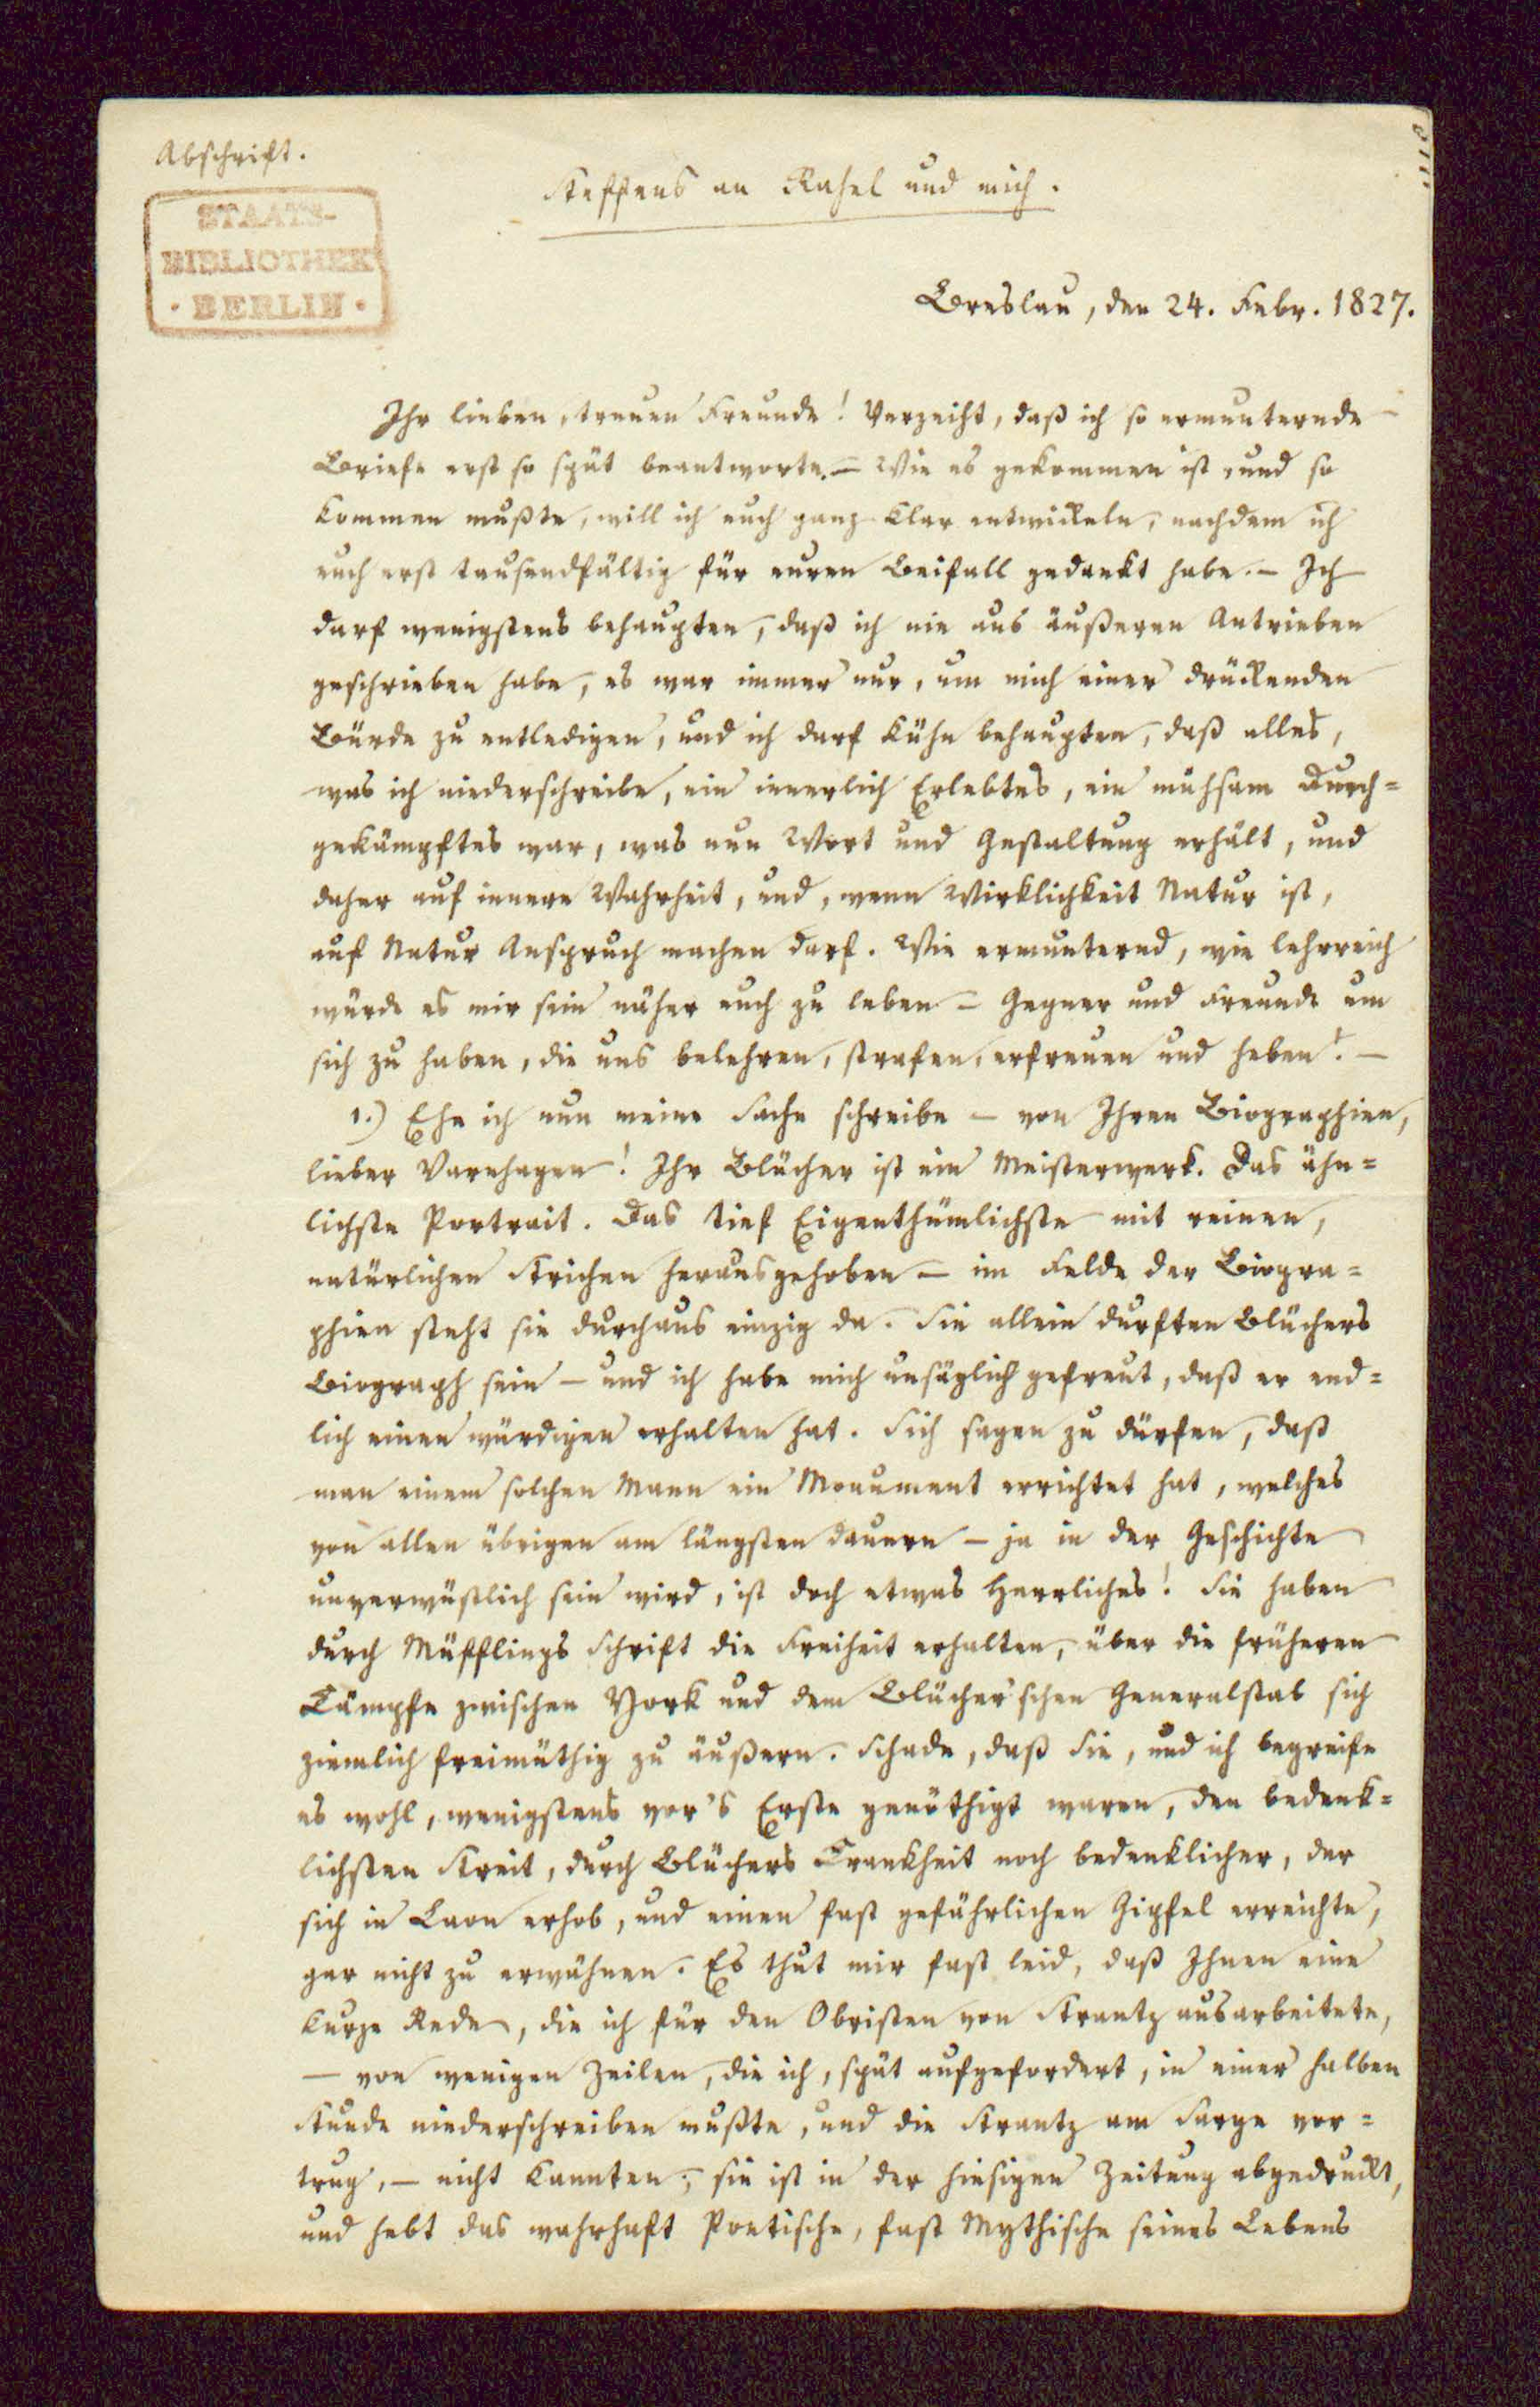 Abschrift.
STAATS-
BIBLIOTHEK
· BERLIN ·
Steffens an Rahel und mich.
Breslau, den 24. Febr. 1827.
Ihr lieben, treuen Freunde! Verzeiht, daß ich so ermunternde
Briefe erst so spät beantworte. – Wie es gekommen ist, und so
kommen mußte, will ich euch ganz klar entwickeln, nachdem ich
euch erst tausendfältig für euren Beifall gedankt habe. – Ich
darf wenigstens behaupten, daß ich nie aus äußeren Antrieben
geschrieben habe, es war immer nur, um mich einer drückenden
Bürde zu entledigen, und ich darf kühn behaupten, daß alles,
was ich niederschreibe, ein innerlich Erlebtes, ein mühsam Durch=
gekämpftes war, was nun Wort und Gestaltung erhält, und
daher auf innere Wahrheit, und, wenn Wirklichkeit Natur ist,
auf Natur Anspruch machen darf. Wie ermunternd, wie lehrreich
würde es mir sein näher euch zu leben – Gegner und Freunde um
sich zu haben, die uns belehren, strafen, erfreuen und heben! –
1.) Ehe ich nun meine Sache schreibe – von Ihren Biographien,
lieber Varnhagen! Ihr Blücher ist ein Meisterwerk. Das ähn=
lichste Portrait. Das tief Eigenthümlichste mit reinen,
natürlichen Strichen herausgehoben – im Felde der Biogra=
phien steht sie durchaus einzig da. Sie allein durften Blüchers
Biograph sein – und ich habe mich unsäglich gefreut, daß er end=
lich einen würdigen erhalten hat. Sich sagen zu dürfen, daß
man einem solchen Mann ein Monument errichtet hat, welches
von allen übrigen am längsten dauern – ja in der Geschichte
unverwüstlich sein wird, ist doch etwas Herrliches! Sie haben
durch Müfflings Schrift die Freiheit erhalten, über die früheren
Kämpfe zwischen York und dem Blücher'schen Generalstab sich
ziemlich freimüthig zu äußern. Schade, daß Sie, und ich begreife
es wohl, wenigstens vor's Erste genöthigt waren, den bedenk=
lichsten Streit, durch Blüchers Krankheit noch bedenklicher, der
sich in Laon erhob, und einen fast gefährlichen Gipfel erreichte,
gar nicht zu erwähnen. Es thut mir fast leid, daß Ihnen eine
kurze Rede, die ich für den Obristen von Strantz ausarbeitete,
– von wenigen Zeilen, die ich, spät aufgefordert, in einer halben
Stunde niederschreiben mußte, und die Strantz am Sarge vor=
trug, – nicht kannten; sie ist in der hiesigen Zeitung abgedruckt,
und hebt das wahrhaft Poetische, fast Mythische seines Lebens